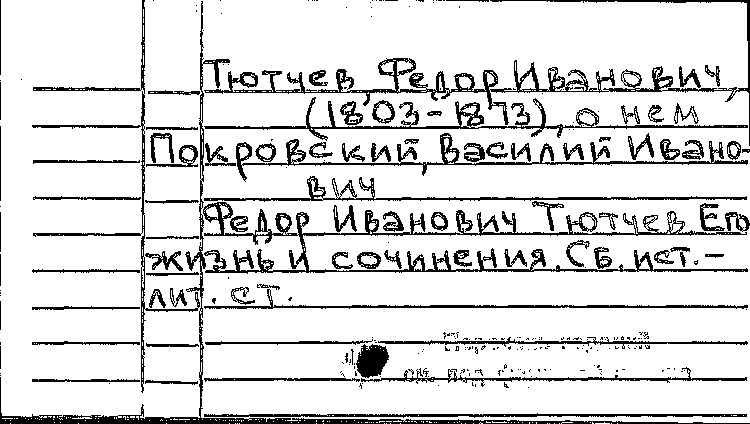 Тютчев, Федор Иванович,
(1803-1873), о нем
Покровский, Василий Ивано-
вич
Федор Иванович Тютчев. Его
жизнь и сочинения. Сб. ист.-
лит. ст.
см. под